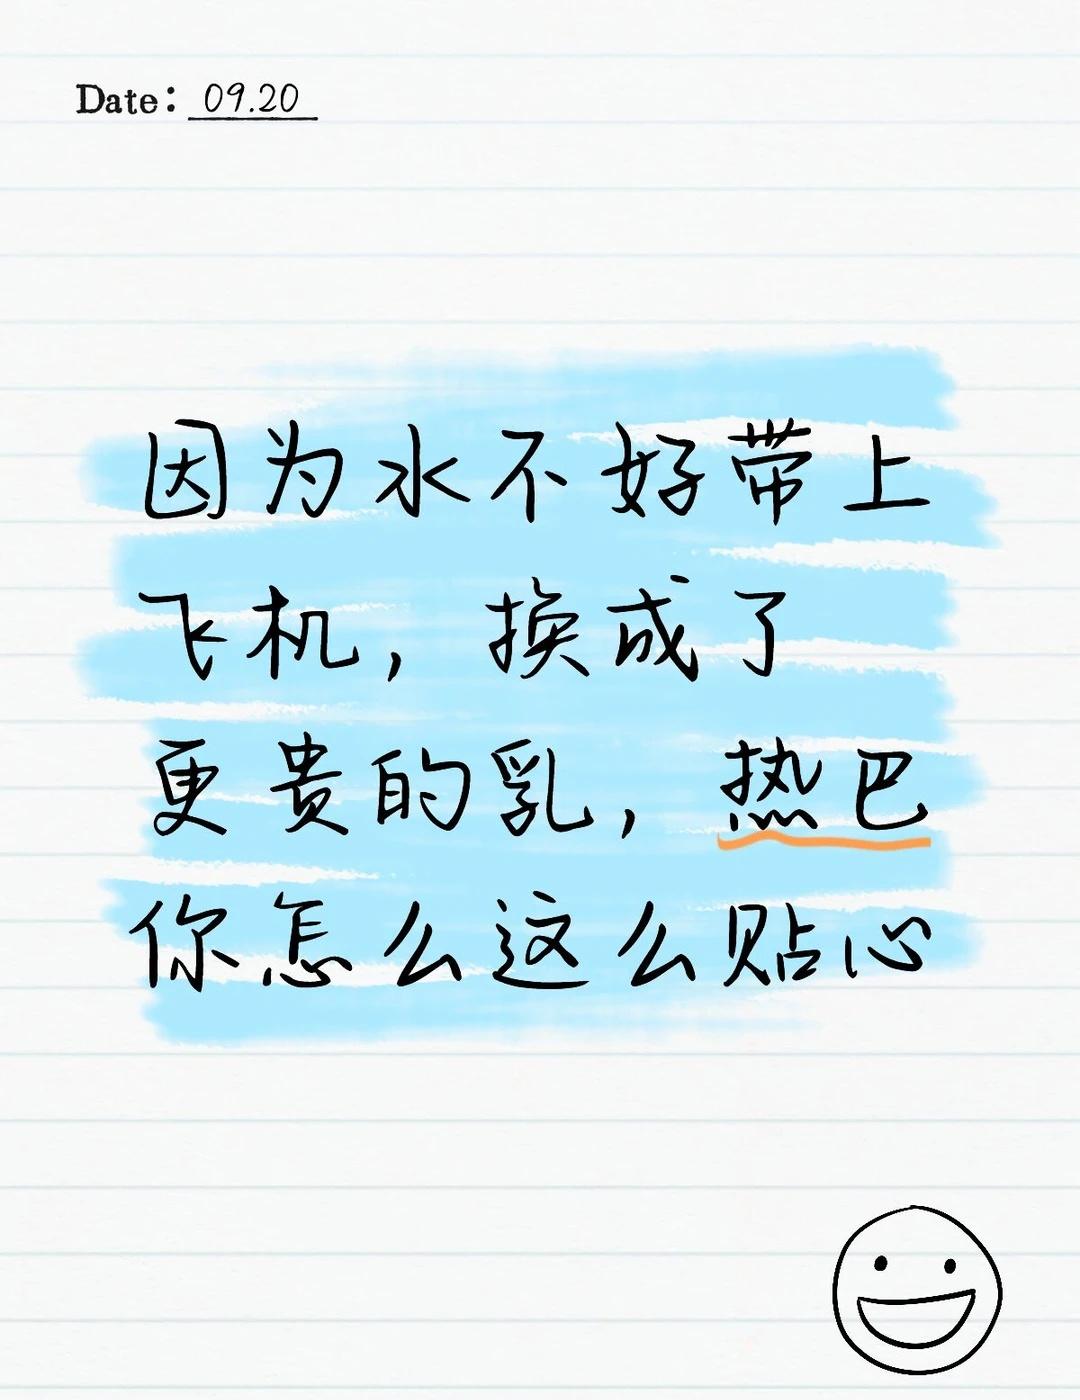 Date: 09.20
因为水不好带上
飞机，换成了
更贵的乳，热巴
你怎么这么贴心